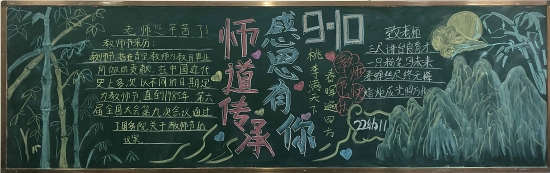 老师您辛苦了!
教师节来历
教师节,旨在肯定教师为教育事业
所做的贡献,在中国近代
史上多次以不同的日期定
为教师节,直至1985年,第六
届全国人大会第九次会议通过
了国务院关于教师节的
议案
师道传承
感恩有你
9·10
桃李满天下
春晖遍四方
教师节快乐
致老师
三尺讲台育才
一只粉笔写未来
春蚕丝尽终无悔
蜡炬成灰